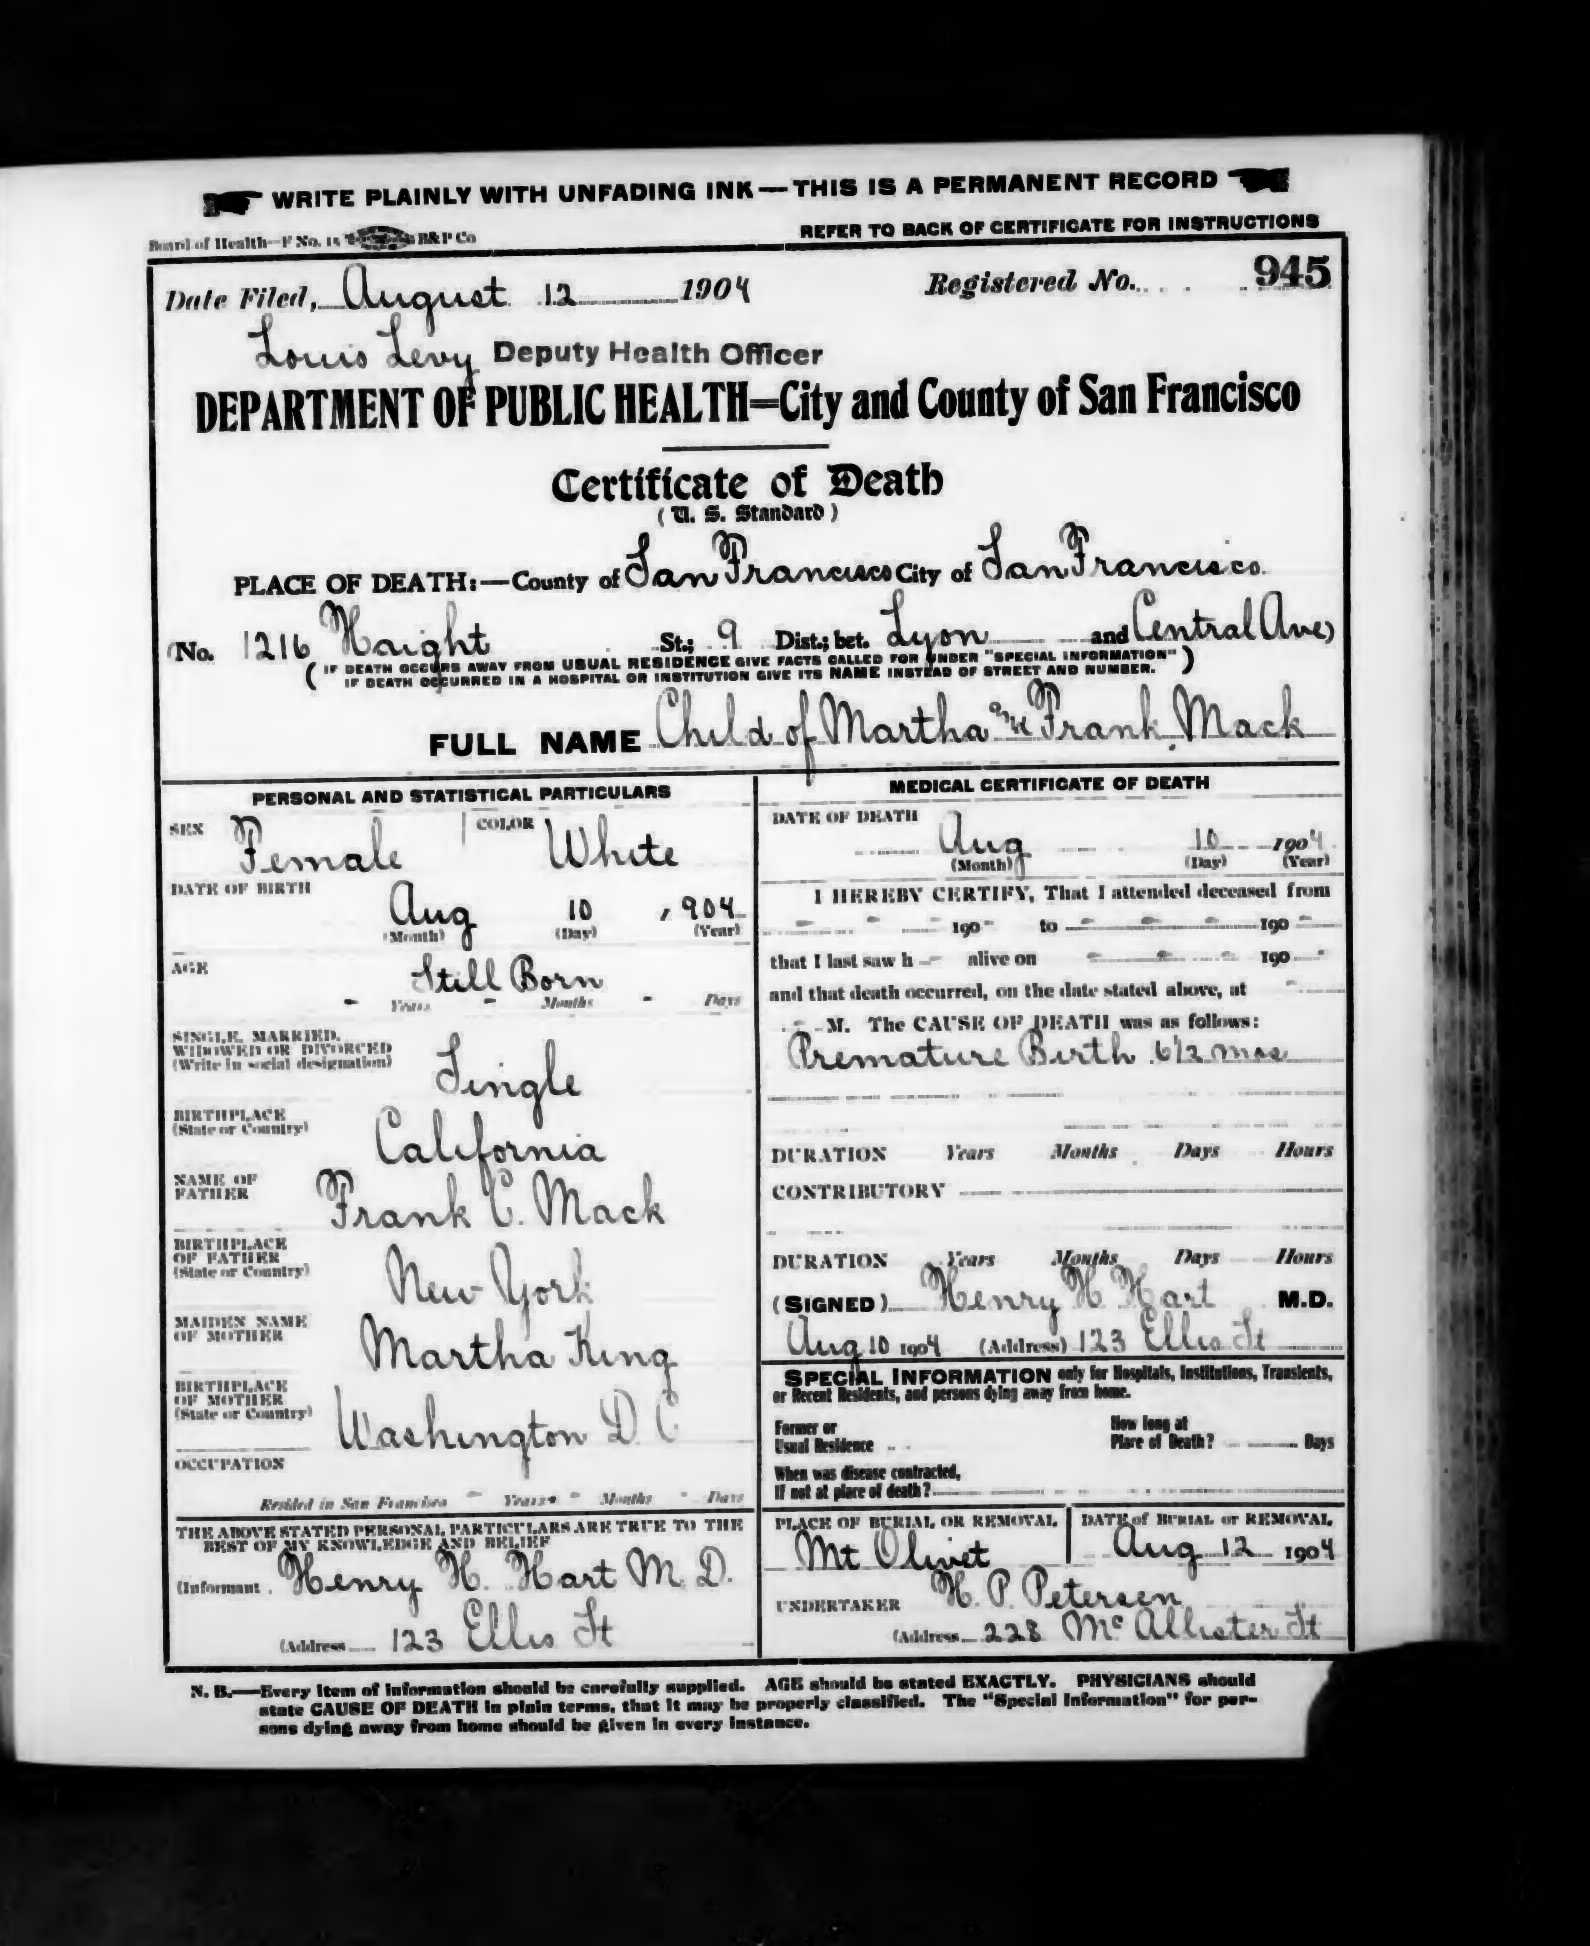 WRITE PLAINLY WITH UNFADING INK — THIS IS A PERMANENT RECORD
Board of Health—F No. 15 B&P Co
REFER TO BACK OF CERTIFICATE FOR INSTRUCTIONS
Date Filed, August 12 1904 Registered No. 945
Louis Levy Deputy Health Officer
DEPARTMENT OF PUBLIC HEALTH=City and County of San Francisco
Certificate of Death
(U. S. Standard)
PLACE OF DEATH:—County of San Francisco City of San Francisco.
(No. 1216 Haight St.; 9 Dist.; bet. Lyon and Central Ave)
(IF DEATH OCCURS AWAY FROM USUAL RESIDENCE GIVE FACTS CALLED FOR UNDER "SPECIAL INFORMATION")
IF DEATH OCCURRED IN A HOSPITAL OR INSTITUTION GIVE ITS NAME INSTEAD OF STREET AND NUMBER.
FULL NAME Child of Martha and Frank Mack
PERSONAL AND STATISTICAL PARTICULARS
SEX Female COLOR White
DATE OF BIRTH
Aug 10 , 904
(Month) (Day) (Year)
AGE Still Born
- Years - Months - Days
SINGLE, MARRIED,
WIDOWED OR DIVORCED
(Write in social designation)
Single
BIRTHPLACE
(State or Country)
California
NAME OF
FATHER
Frank C. Mack
BIRTHPLACE
OF FATHER
(State or Country)
New York
MAIDEN NAME
OF MOTHER
Martha King
BIRTHPLACE
OF MOTHER
(State or Country)
Washington D. C
OCCUPATION
Resided in San Francisco - Years - Months - Days
THE ABOVE STATED PERSONAL PARTICULARS ARE TRUE TO THE
BEST OF MY KNOWLEDGE AND BELIEF
(Informant Henry H. Hart M. D.
(Address 123 Ellis St
MEDICAL CERTIFICATE OF DEATH
DATE OF DEATH
Aug 10 1904
(Month) (Day) (Year)
I HEREBY CERTIFY, That I attended deceased from
190 to 190
that I last saw h alive on 190
and that death occurred, on the date stated above, at
M. The CAUSE OF DEATH was as follows:
Premature Birth 6 1/2 mos
DURATION Years Months Days Hours
CONTRIBUTORY
DURATION Years Months Days Hours
(SIGNED) Henry H Hart M.D.
Aug 10 1904 (Address) 123 Ellis St
SPECIAL INFORMATION only for Hospitals, Institutions, Transients,
or Recent Residents, and persons dying away from home.
Former or
Usual Residence
How long at
Place of Death? Days
When was disease contracted,
If not at place of death?
PLACE OF BURIAL OR REMOVAL
Mt Olivet
DATE of BURIAL or REMOVAL
Aug 12 1904
UNDERTAKER H. P. Petersen
(Address 228 McAllister St
N. B.—Every item of information should be carefully supplied. AGE should be stated EXACTLY. PHYSICIANS should
state CAUSE OF DEATH in plain terms, that it may be properly classified. The "Special Information" for per-
sons dying away from home should be given in every instance.